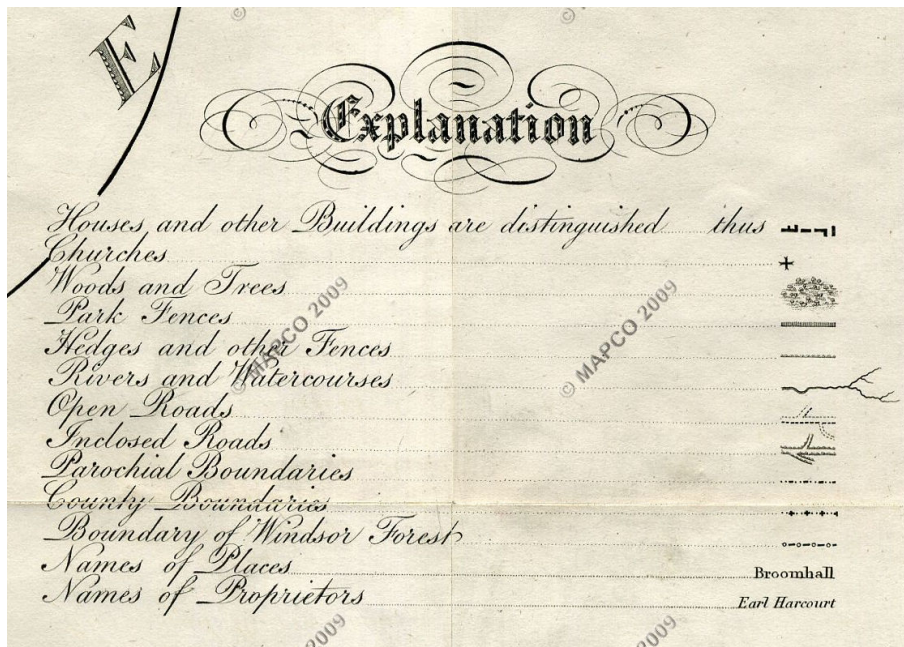 E
Explanation
Houses, and other Buildings are distinguished thus
Churches
Woods and Trees
Park Fences
Hedges and other Fences
Rivers and Watercourses
Open Roads
Inclosed Roads
Parochial Boundaries
County Boundaries
Boundary of Windsor Forest
Names of Places Broomhall
Names of Proprietors Earl Harcourt
© MAPCO 2009
© MAPCO 2009
2009
2009